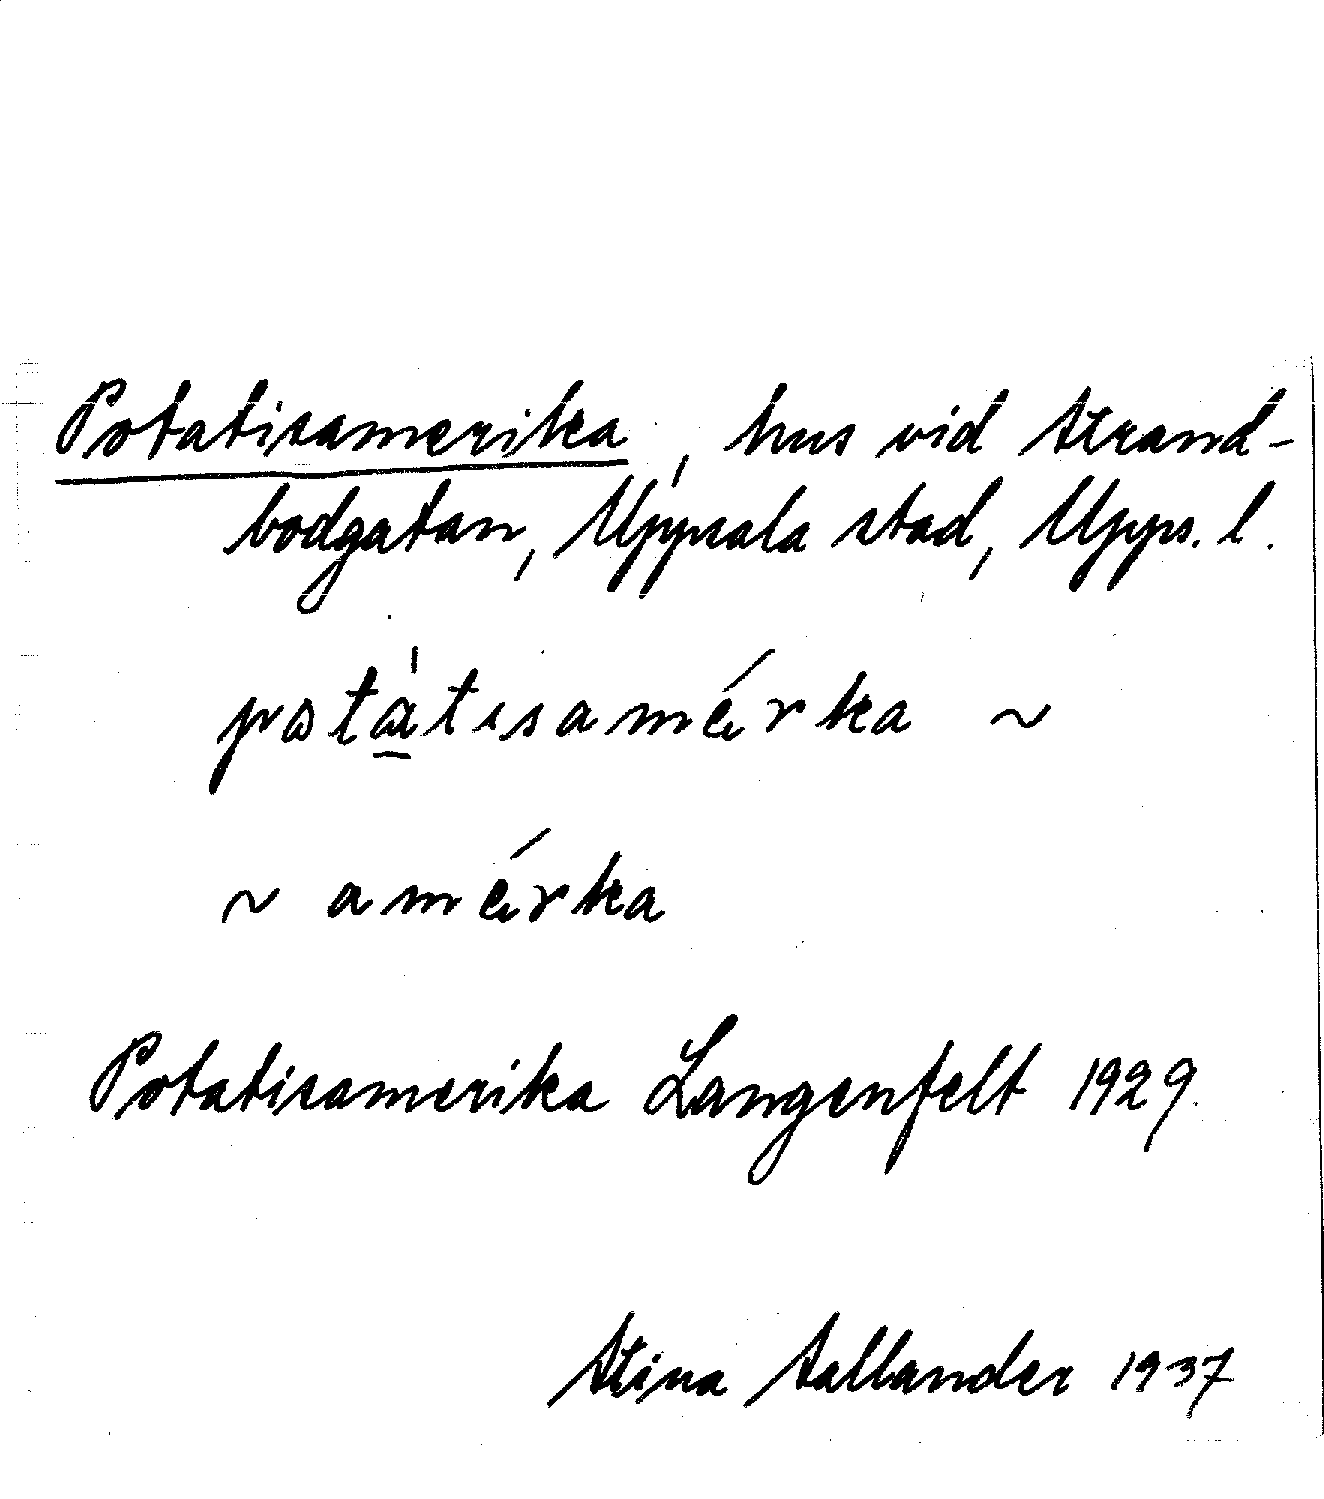 Potatisamerika, hus vid Strand-
bodgatan, Uppsala stad, Upps. l.
potátisamérka ~
~ amérka
Potatisamerika Langenfelt 1929.
Stina Sallander 1937